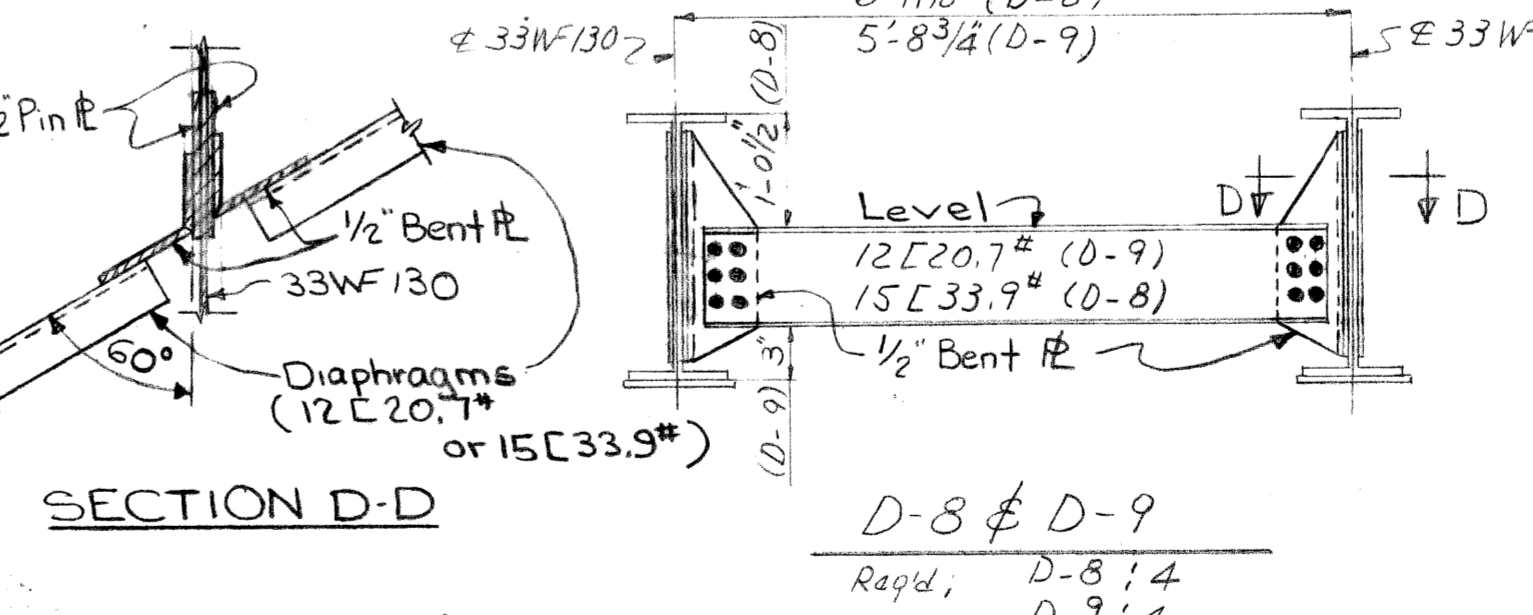 ℄ 33WF130
5'-8 3/4" (D-9)
℄ 33 WF
Pin ℙL
1'-0 1/2" (D-8)
1/2" Bent ℙL
33WF 130
60°
Diaphragms
(12 [ 20.7#
or 15 [ 33.9#)
SECTION D-D
Level
D D
12 [ 20.7# (D-9)
15 [ 33.9# (D-8)
1/2" Bent ℙL
3" (D-9)
D-8 & D-9
Req'd; D-8 ; 4
D-9